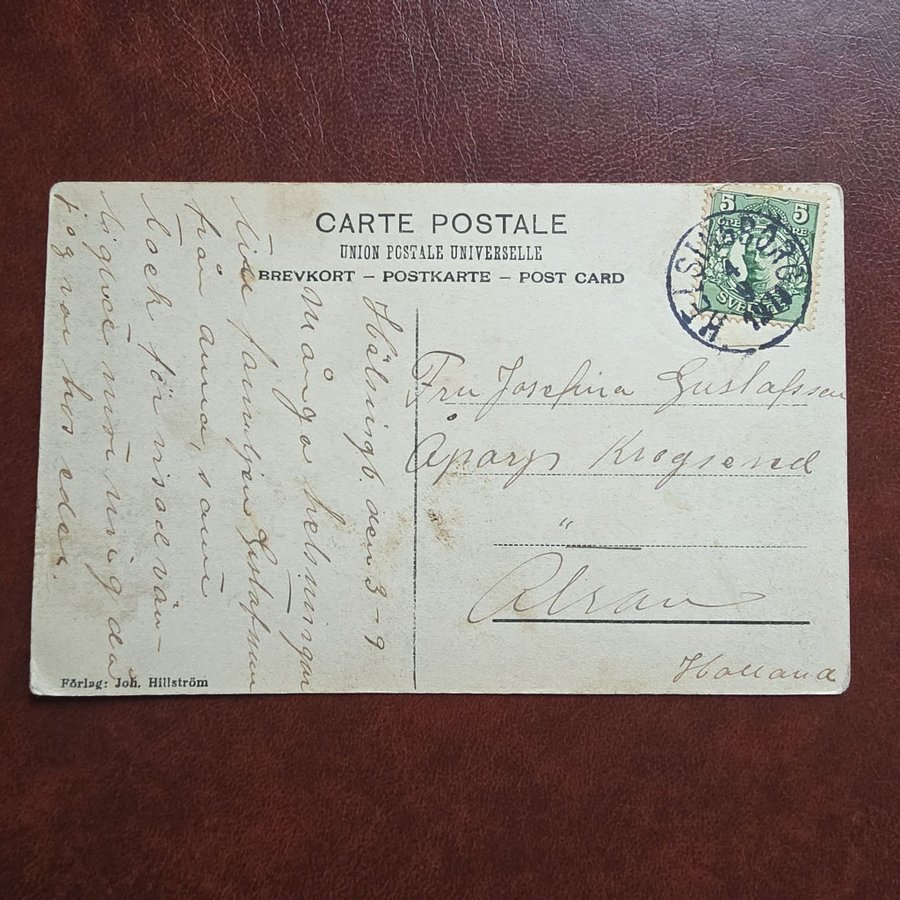 CARTE POSTALE
UNION POSTALE UNIVERSELLE
BREVKORT – POSTKARTE – POST CARD
5 5
SVERIGE
HELSINGBORG
Hälsingb. den 3-9
Många helsningar
familjen Gustafsson
från Anna, samt
tack för visad vän-
mot mig då
jag var hos eder.
Fru Josefina Gustafsson
Åparp Kragsend
"
Holland
Förlag: Joh. Hillström